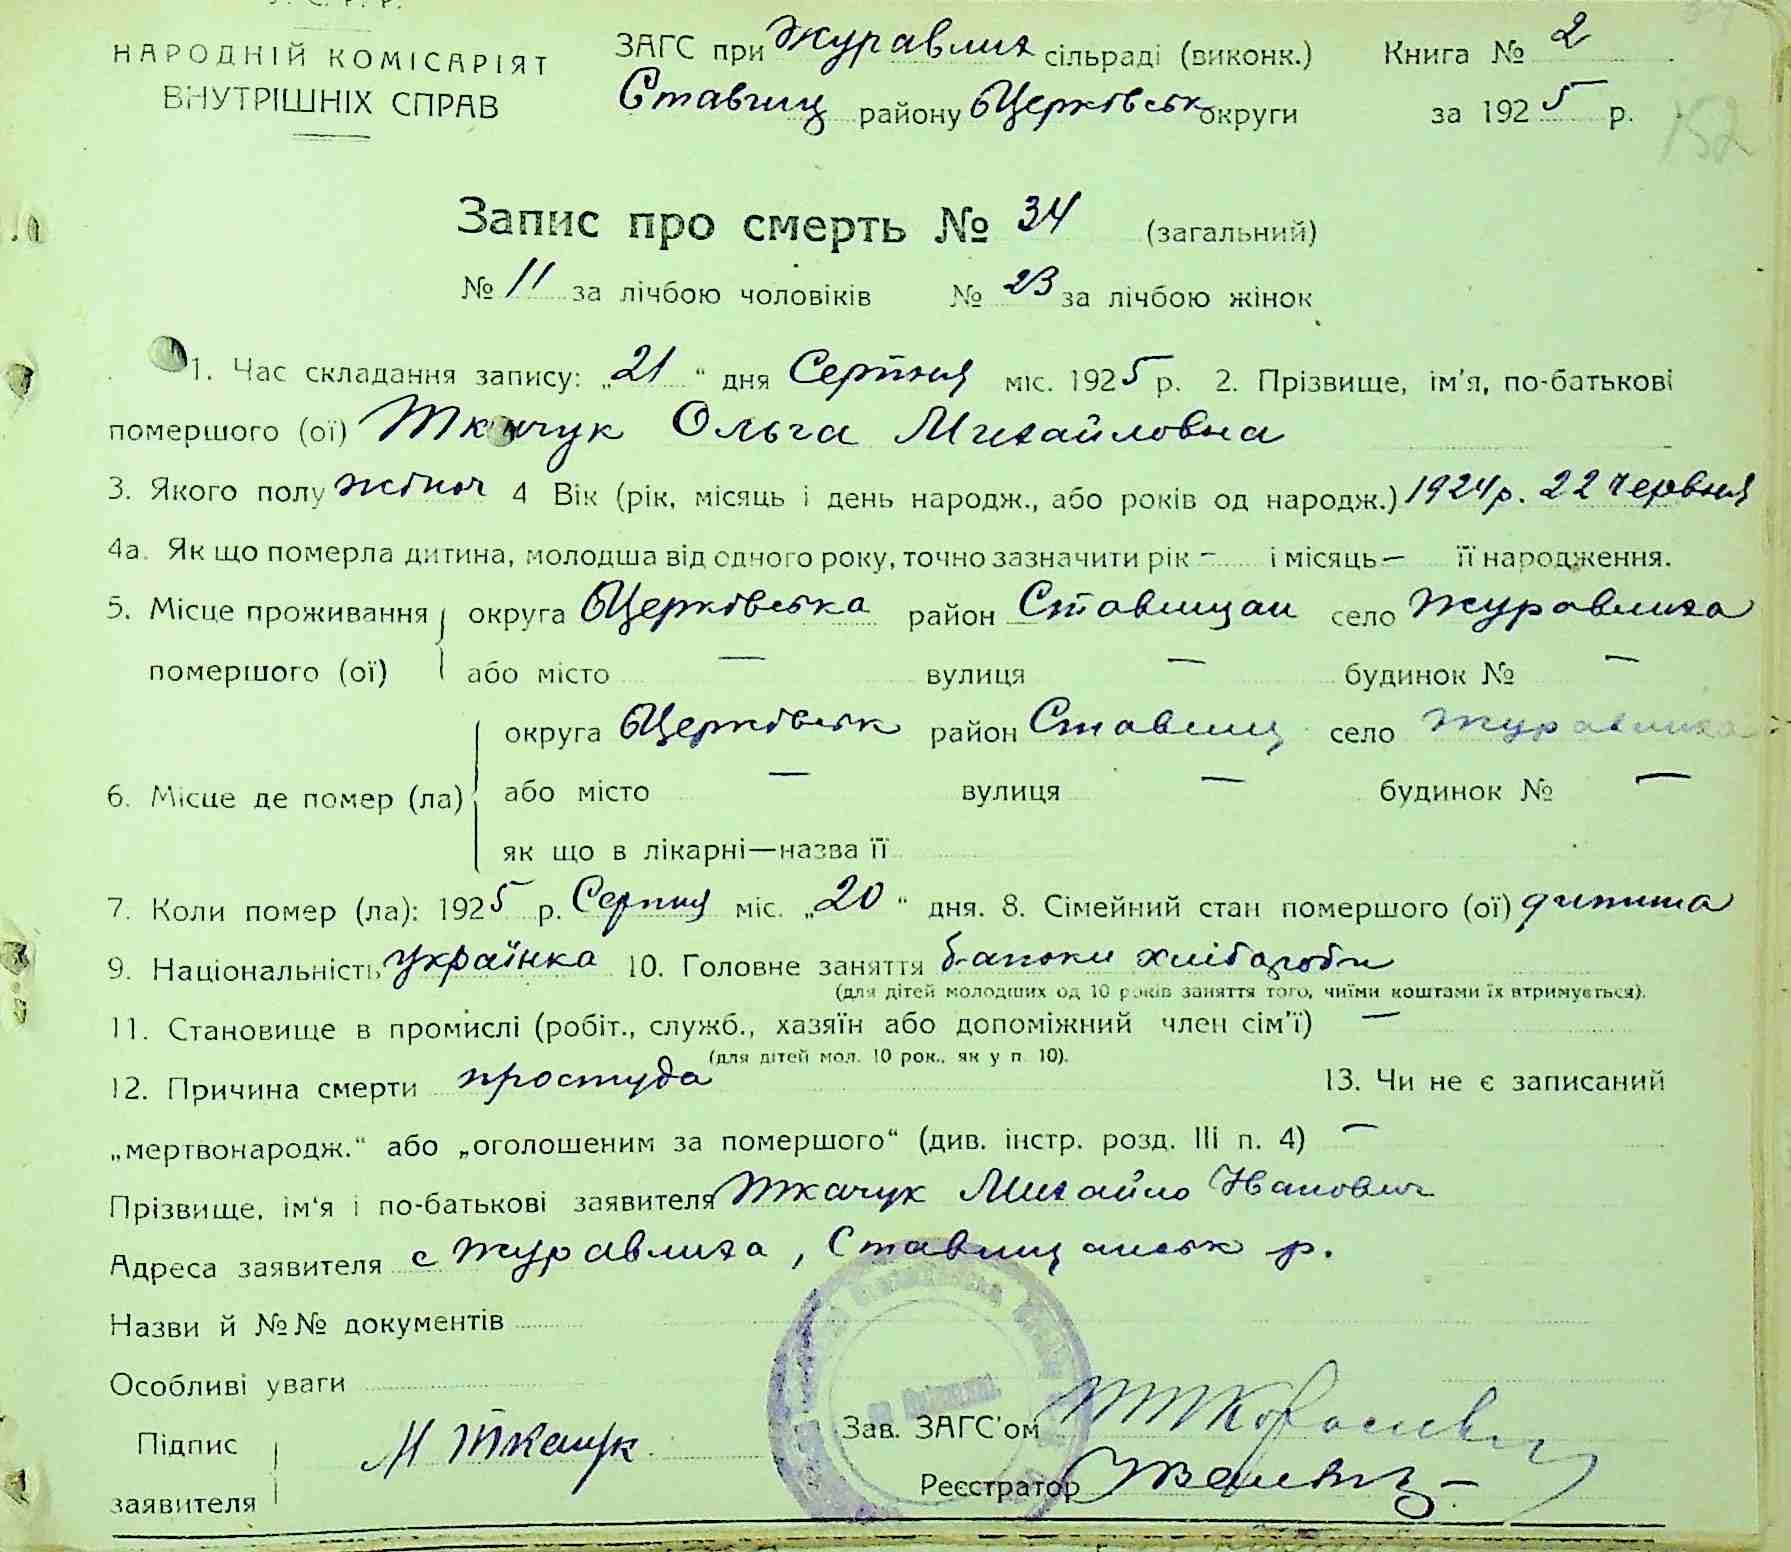 У. С. Р. Р.
НАРОДНІЙ КОМІСАРІЯТ
ВНУТРІШНІХ СПРАВ
ЗАГС при Журавлих сільраді (виконк.) Книга № 2
Ставищ району БЦерківськ округи за 1925 р.
152
Запис про смерть № 34 (загальний)
№ 11 за лічбою чоловіків № 23 за лічбою жінок
1. Час складання запису: „21“ дня Серпня міс. 1925 р. 2. Прізвище, ім'я, по-батькові
помершого (ої) Ткачук Ольга Михайловна
3. Якого полу жіноч 4 Вік (рік, місяць і день народж., або років од народж.) 1924 р. 22 червня
4а. Як що померла дитина, молодша від одного року, точно зазначити рік – і місяць – її народження.
5. Місце проживання округа БЦерківська район Ставищан село Журавлиха
помершого (ої) або місто — вулиця — будинок № —
округа БЦерківськ район Ставищ село Журавлиха
6. Місце де помер (ла) або місто — вулиця — будинок № —
як що в лікарні—назва її
7. Коли помер (ла): 1925 р. Серпня міс. „20“ дня. 8. Сімейний стан помершого (ої) дитина
9. Національність українка 10. Головне заняття батьки хлібороби
(для дітей молодших од 10 років заняття того, чиїми коштами їх втримується).
11. Становище в промислі (робіт., служб., хазяїн або допоміжний член сім'ї) —
(для дітей мол. 10 рок., як у п. 10).
12. Причина смерти простуда 13. Чи не є записаний
„мертвонародж.“ або „оголошеним за помершого“ (див. інстр. розд. III п. 4) —
Прізвище, ім'я і по-батькові заявителя Ткачук Михайло Іванович
Адреса заявителя с Журавлиха, Ставищанськ р.
Назви й №№ документів
Особливі уваги
Підпис М Ткачук Зав. ЗАГС'ом
заявителя Реєстратор